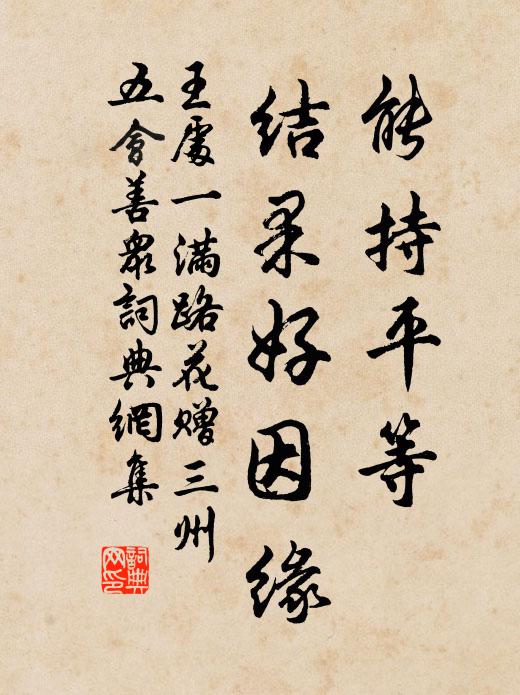 能持平等
结果好因緣
王處一满路花赠三州
五會善衆詞典網集
詞典
网印